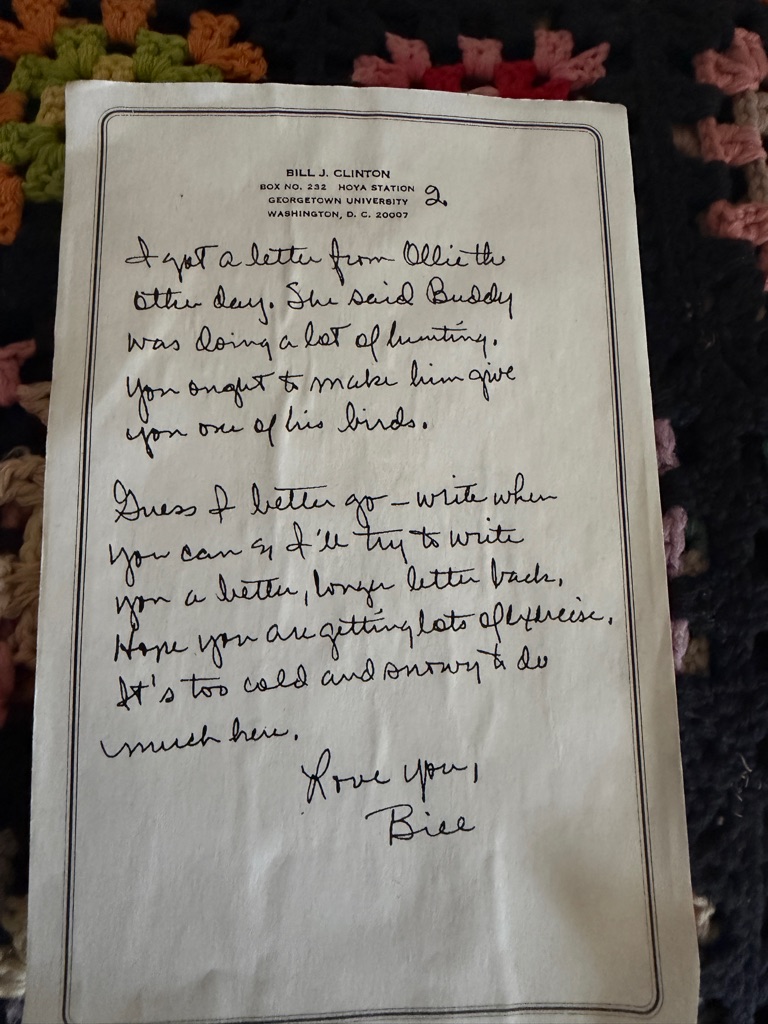 BILL J. CLINTON
BOX NO. 232 HOYA STATION
GEORGETOWN UNIVERSITY
WASHINGTON, D. C. 20007
2.
I got a letter from Ollie the
other day. She said Buddy
was doing a lot of hunting.
You ought to make him give
you one of his birds.
Guess I better go – write when
you can & I'll try to write
you a better, longer letter back.
Hope you are getting lots of exercise.
It's too cold and snowy to do
much here.
Love you,
Bill